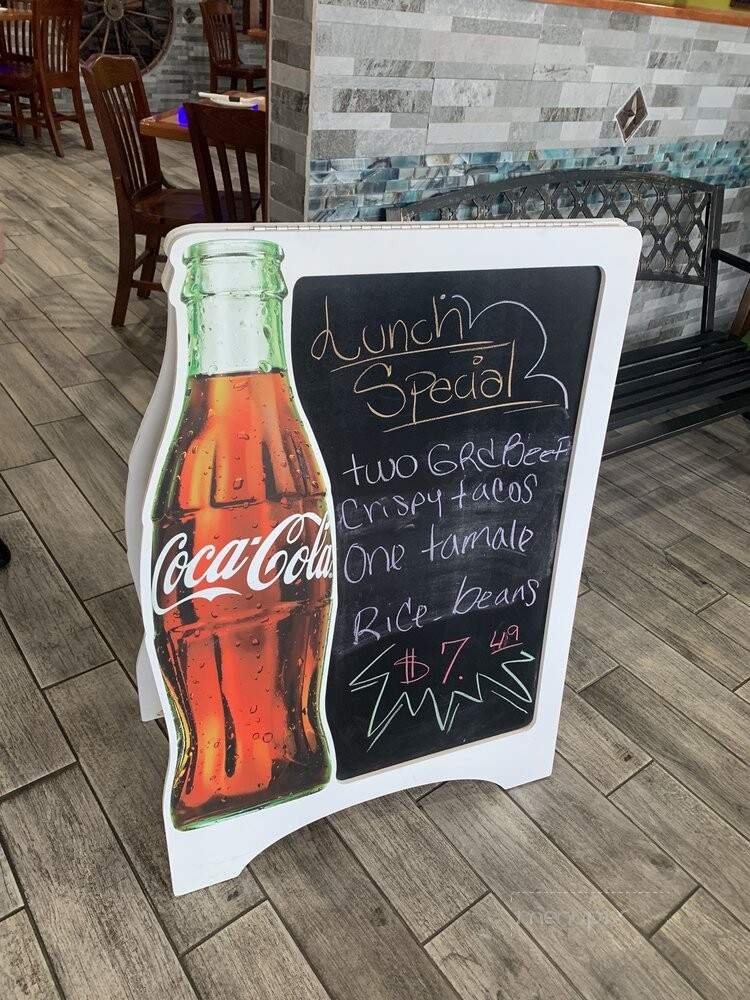 Lunch
Special
two GRd Beef
Crispy tacos
One tamale
Rice beans
$7.49
Coca-Cola
menupix